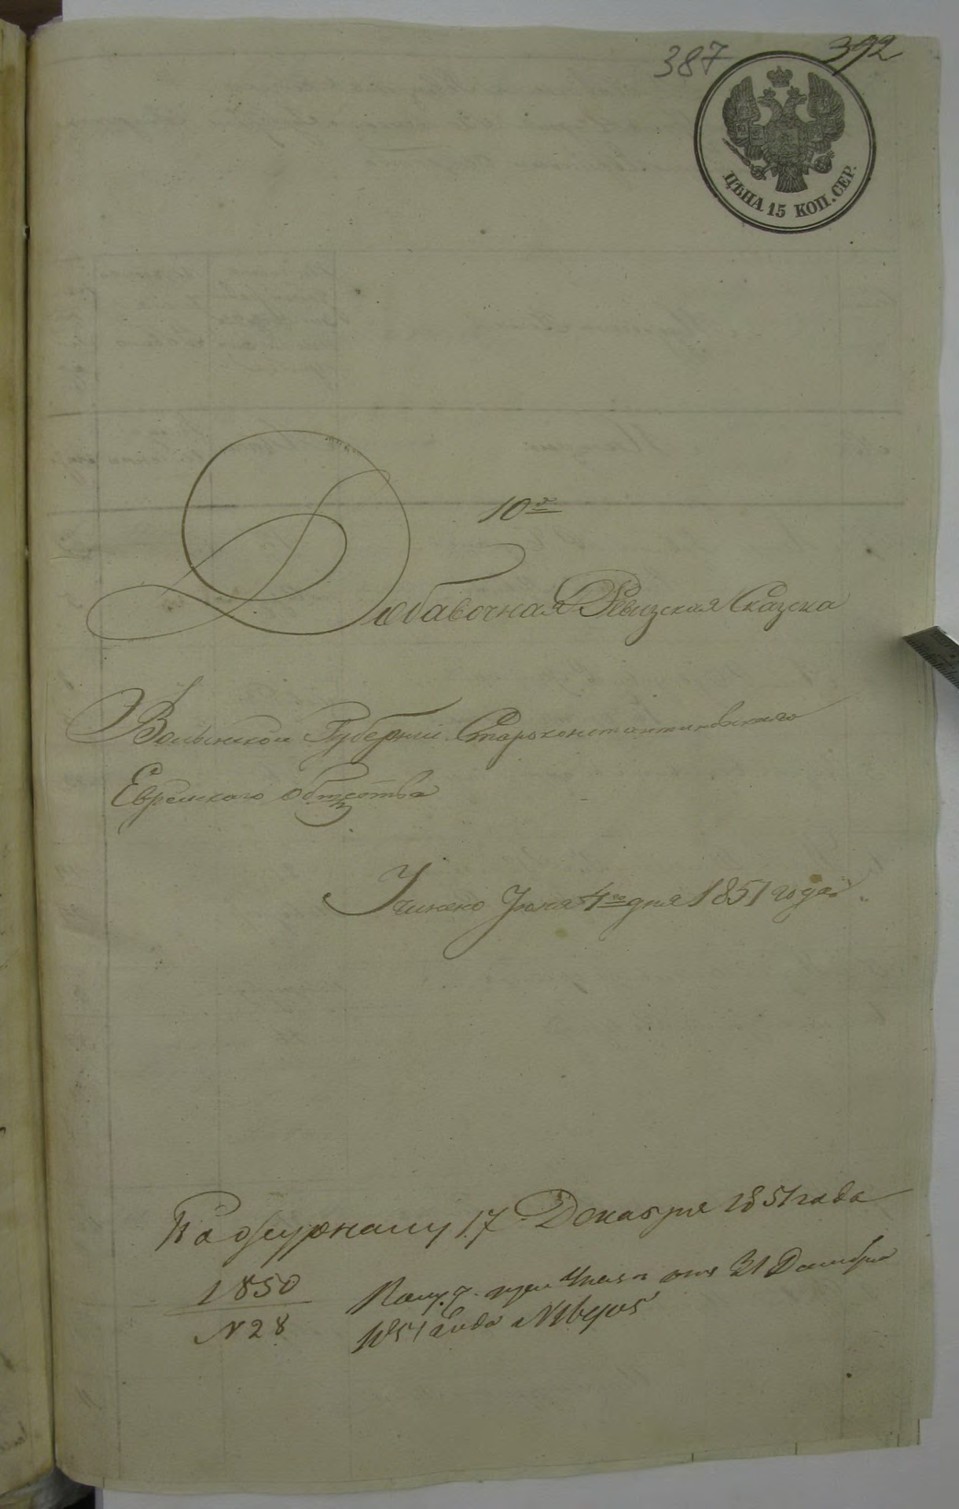 387 392
ЦѢНА 15 КОП. СЕР.
10я
Добавочная Ревизская Сказска
Волынской Губерніи Староконстантиновского
Еврейского общества
Учинено Іюня 4го дня 1851 года
По журналу 17 Декабря 1851 года
1850 при Указѣ отъ 31 Декабря
N 28 1851 года N